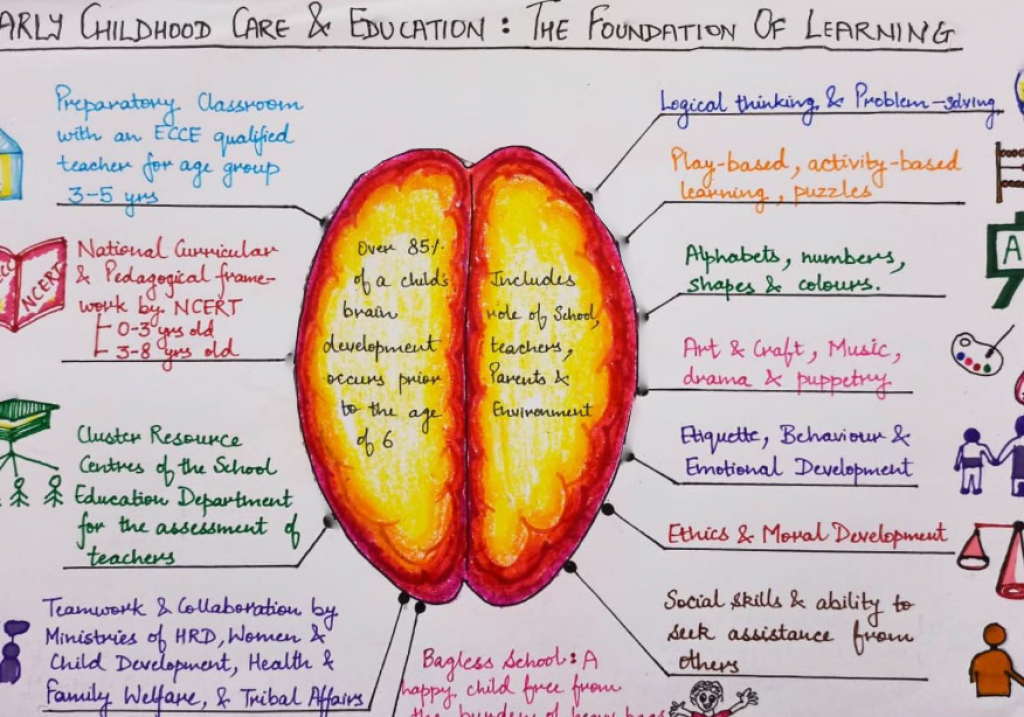 ARLY CHILDHOOD CARE & EDUCATION : THE FOUNDATION OF LEARNING
Preparatory Classroom
with an ECCE qualified
teacher for age group
3-5 yrs
NCERT
National Curricular
& Pedagogical frame-
work by NCERT
0-3 yrs old
3-8 yrs old
Cluster Resource
Centres of the School
Education Department
for the assessment of
teachers
Teamwork & Collaboration by
Ministries of HRD, Women &
Child Development, Health &
Family Welfare, & Tribal Affairs
Over 85%
of a child's
brain
development
occurs prior
to the age
of 6
Includes
role of School,
teachers,
Parents &
Environment
Bagless School: A
happy child free from
the burden of heavy bags
Logical thinking & Problem-solving
Play-based, activity-based
learning, puzzles
Alphabets, numbers,
shapes & colours.
A
Art & Craft, Music,
drama & puppetry
Etiquette, Behaviour &
Emotional Development
Ethics & Moral Development
Social skills & ability to
seek assistance from
others